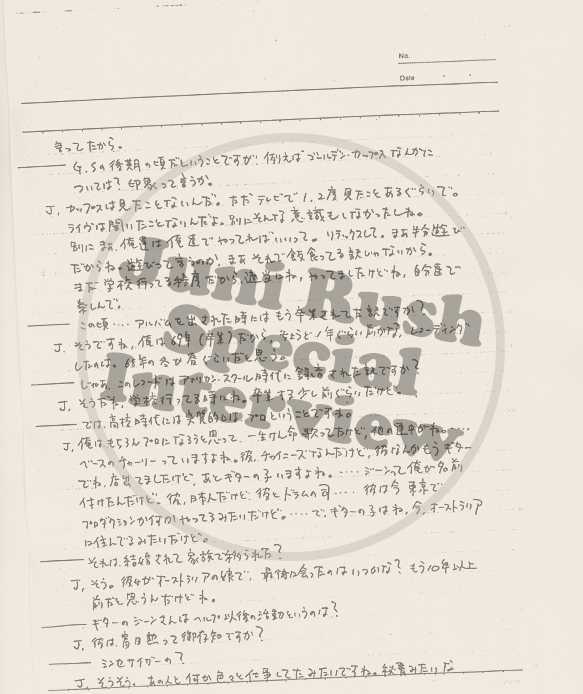 No.
Date
Jimi Rush
Special
Interview
きってたから。
G.Sの後期の頃だということですが、例えばゴールデン・カップスなんかに
ついては? 印象って言うか。
J, カップスは見たことないんだ。ただテレビで1,2度見たことあるぐらいで。
ライヴは聞いたことないんだよ。別にそんな意識もしなかったしね。
別にまぁ、俺達は俺達でやってればいいって。リラックスして。まぁ半分遊び
だからね。遊びって言うのが、まぁそれで飯食ってる訳じゃないから。
まだ学校行ってる程度だから、適当にね、やってましたけどね、自分達で
楽しんで。
この頃‥‥アルバムを出された時にはもう卒業されてた訳ですか?
J. そうですね、俺は69年(卒業)だから、ちょうど1年ぐらい前かな。レコーディング
したのは。68年の冬か春ぐらいだと思う。
じゃあ、このレコードはアメリカン・スクール時代に録音された訳ですか?
J, そうだね、学校行ってる時にね。卒業する少し前ぐらいだけど。
では、高校時代には実質的にはプロということですね。
J, 俺はもちろんプロになろうと思って、一生けん命歌ってたけど、他の連中がね。‥‥
ベースのチャーリーっていますよね。彼、チャイニーズなんだけど、彼なんかもうギター
でね、店出てましたけど、あとギターの子いますよね。‥‥ジーンって俺が名前
付けたんだけど。彼、日本人だけど、彼とドラムの司‥‥ 彼は今東京で
プロダクションか何かやってるみたいだけど。‥‥で、ギターの子はね、今、オーストラリア
に住んでるみたいだけど。
それは、結婚されて家族で移られた?
J, そう。彼女がオーストラリアの娘で、最後に会ったのはいつかな? もう10年以上
前だと思うんだけどね。
ギターのジーンさんはヘルプ以後の活動というのは?
J, 彼は、青目熱って御存知ですか?
シンセサイザーの?
J, そうそう、あの人と何か色々と仕事してたみたいですね。秘書みたいな